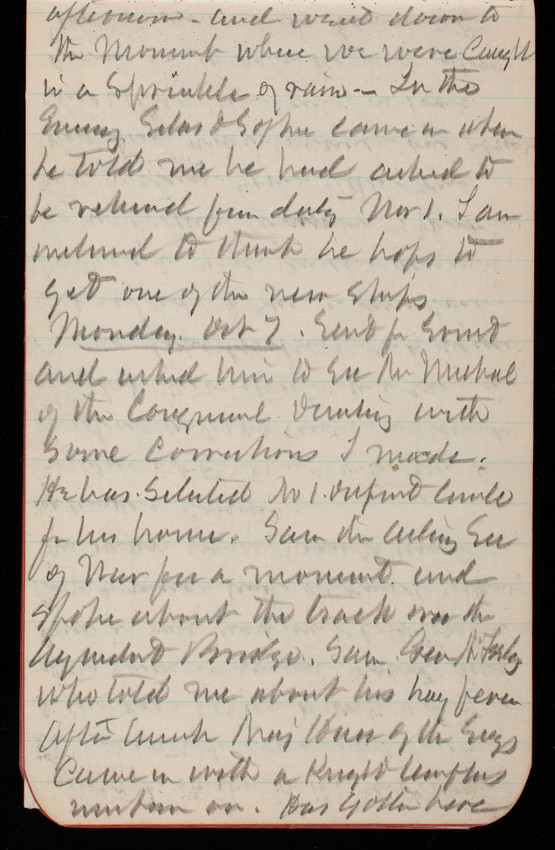 afternoon - and went down to
the Monument where we were Caught
in a Sprinkle of rain - In the
Evening Silas & Sophie came in when
he told me he had asked to
be relieved from duty Nov 1. I am
inclined to think he hops to
get one of the new ships
Monday. Oct 7. Sent for
and asked him to see Mr
of the Congressional with
Some Corrections I made.
He has Selected No 1. Dupont Circle
for his home. Saw the acting Sec
of War for a moment and
Spoke about the track over the
Aqueduct Bridge. Saw Geo
who told me about his hay fever
After lunch Maj of the Engs
Came in with a Knight Templars
on. Has gotten here